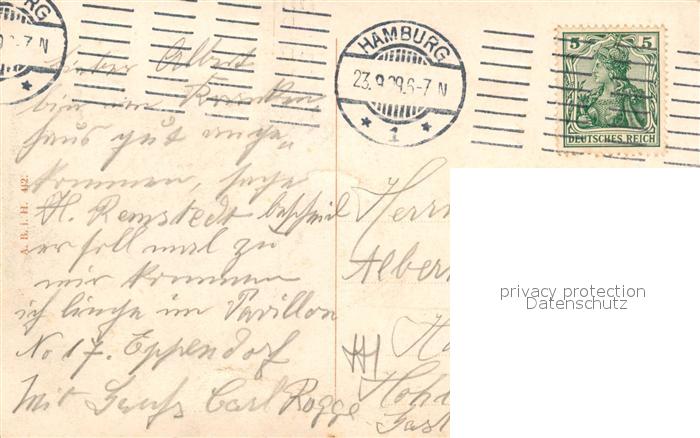 HAMBURG
23.9.09.6-7 N
* 1 *
5 5
DEUTSCHES REICH
Lieber Albert
bin im Kranken
haus gut ange„
kommen, sage
H. Remstedt bescheid
er soll mal zu
mir kommen
ich liege im Pavillon
No 17. Eppendorf
Mit Gruß Carl Rogge
A. B. i. H. 412.
Herrn
Albert
privacy protection
Datenschutz